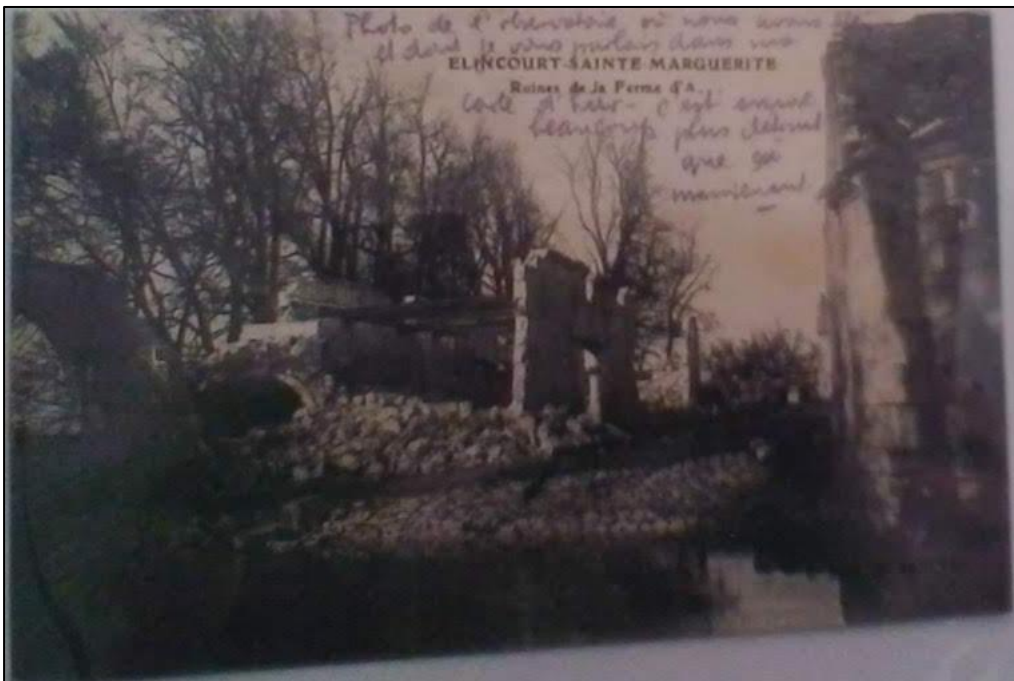 Photo de l'observatoire où nous avons
et dont je vous parlais dans ma
ELINCOURT-SAINTE MARGUERITE
Ruines de la Ferme d'A
carte d'hier - c'est encore
beaucoup plus détruit
que ça
maintenant